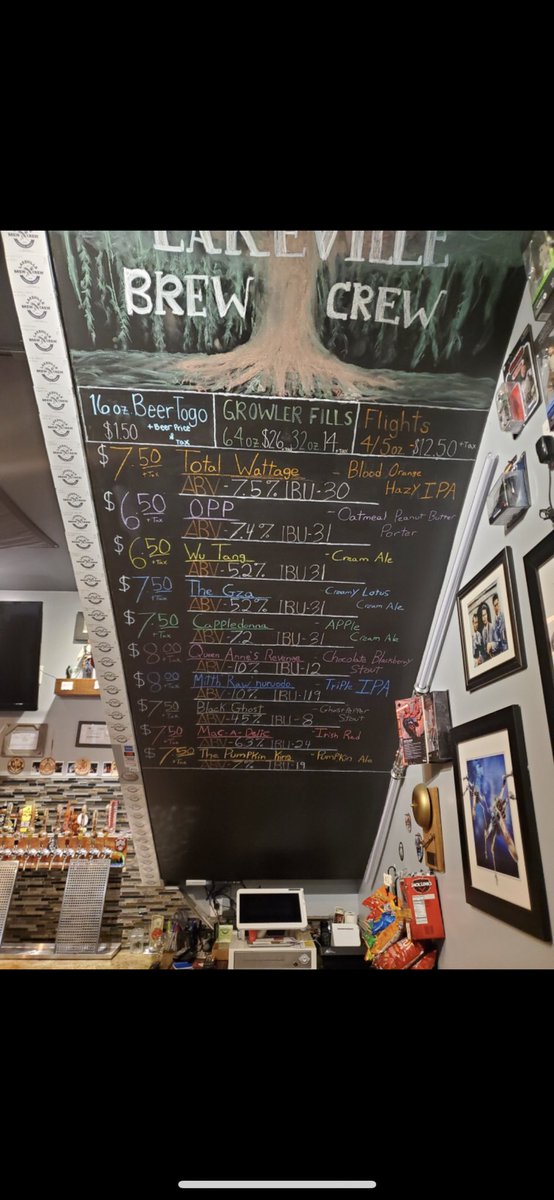 LAKEVILLE
BREW CREW
16 oz Beer Togo
$1.50 + Beer Price
+ Tax
GROWLER FILLS
64 oz $26 32 oz 14 + Tax
Flights
4/5oz - $12.50 + Tax
$7.50 + Tax Total Wattage - Blood Orange
ABV - 7.5% IBU - 30 Hazy IPA
$6.50 + Tax OPP - Oatmeal Peanut Butter
ABV - 7.4% IBU - 31 Porter
$6.50 + Tax Wu Tang - Cream Ale
ABV - 5.2% IBU 31
$7.50 + Tax The Gza Creamy Lotus
ABV - 5.2% IBU - 31 Cream Ale
$7.50 + Tax Cappledonna - APPle
ABV - 7.2 IBU - 31 Cream Ale
$8.00 + Tax Queen Anne's Revenge Chocolate Blackberry
ABV - 10% IBU - 12 Stout
$8.00 + Tax Mitth Raw nuruodo - Triple IPA
ABV - 10% IBU - 119
$7.50 + Tax Black Ghost
ABV - 4.5% IBU - 8 Stout
$7.50 + Tax Mac-A-Delic - Irish Red
ABV - 6.3% IBU - 24
$7.50 + Tax The Pumpkin King - Pumpkin Ale
ABV - 7% IBU - 19